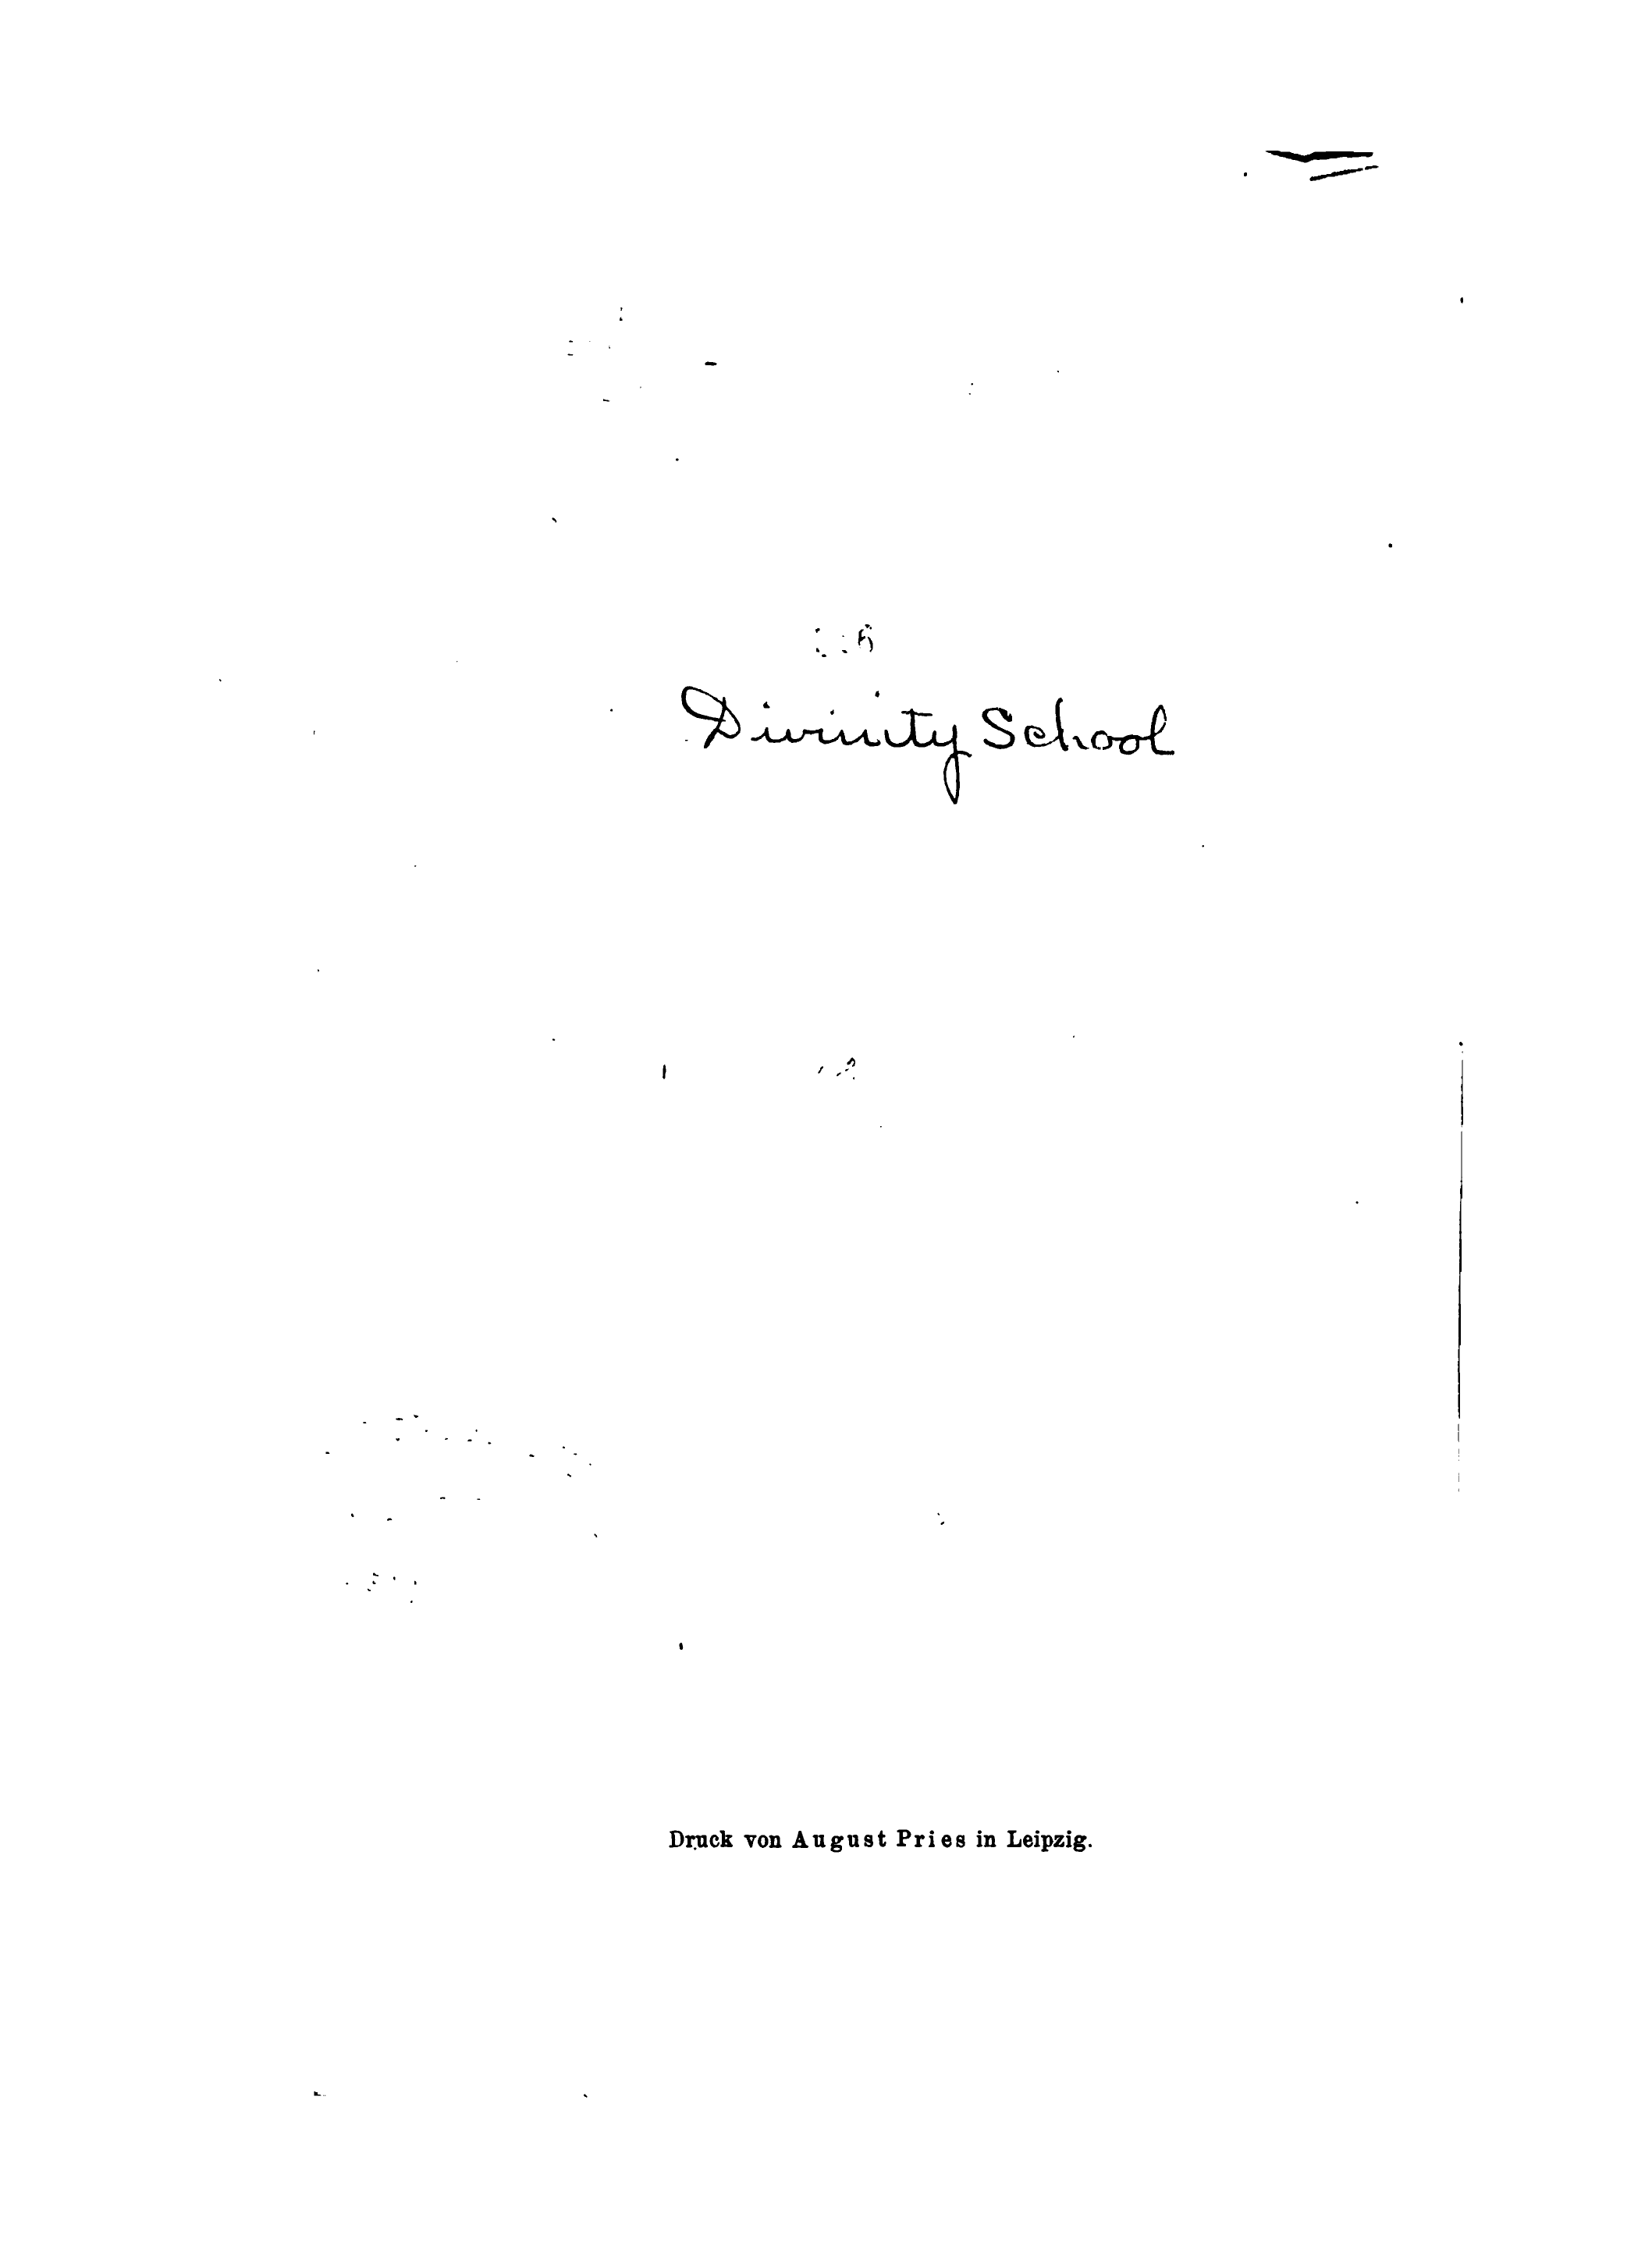 Divinity School
Druck von August Pries in Leipzig.